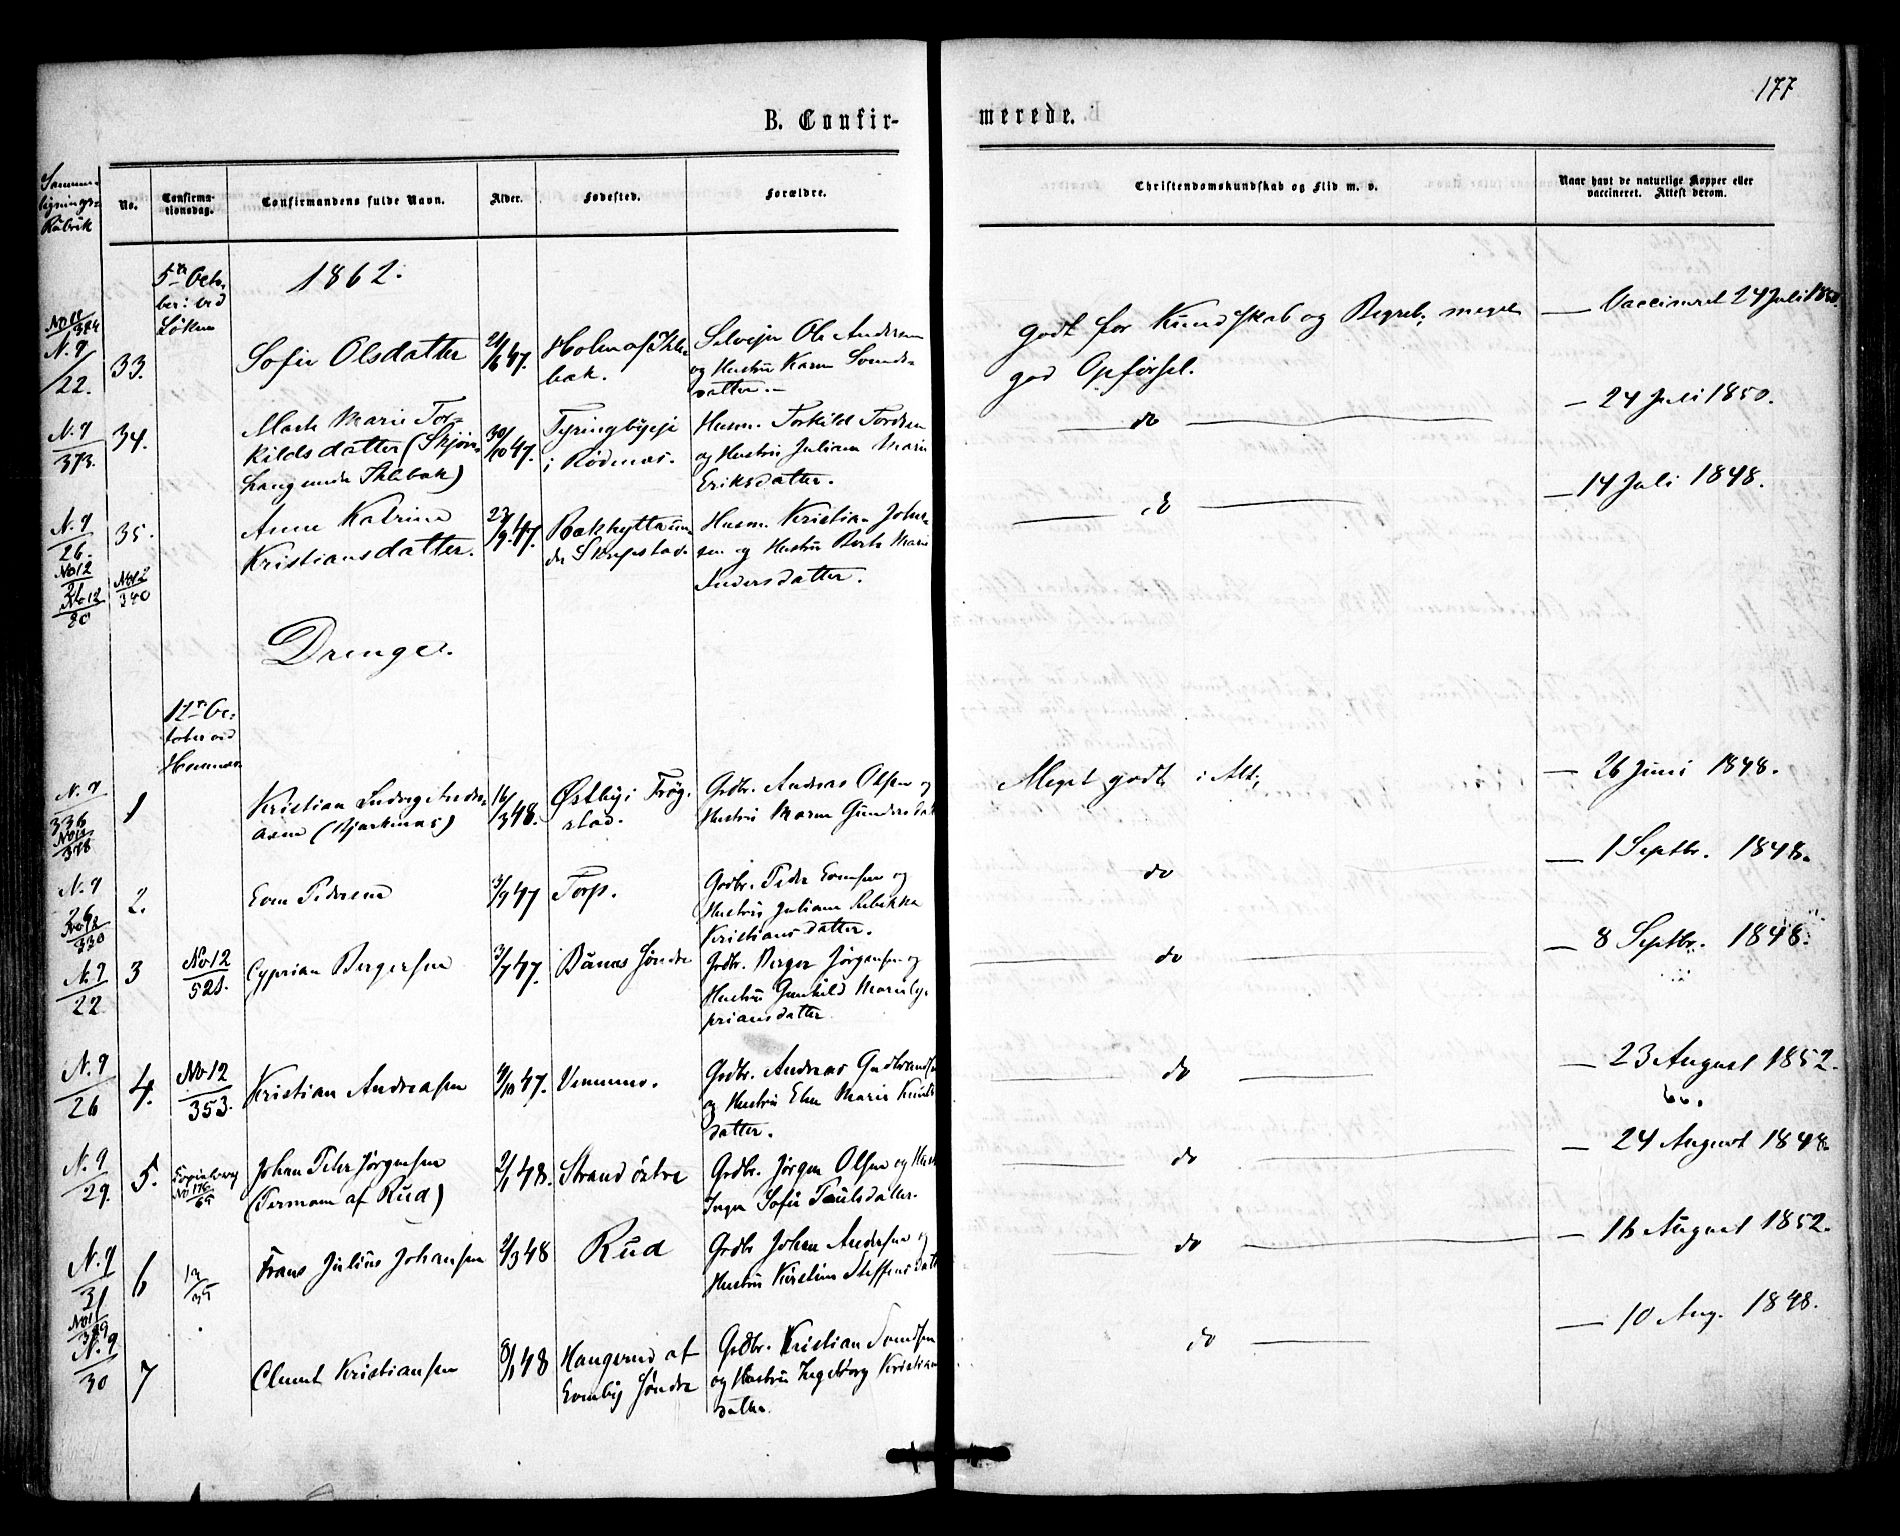 177
B. Confir-
merede.
No.
Confirma-
tionsdag.
Confirmandens fulde Navn.
Alder.
Fødested.
Forældre.
Christendomskundskab og Flid m. v.
Naar havt de naturlige Kopper eller
vaccineret. Attest derom.
Sammen-
lignings-
Rubrik
5te Octo-
ber: ved
1862.
N. 9
/22.
33.
Sofie Olsdatter
47.
Selveier Ole Andersen
og Hustru Karen Svends-
datter.
godt for Kundskab og Begreb; meget
god Opførsel.
Vaccineret 24 Juli 1850.
N. 9
373.
34.
Marie Tor-
kildsdatter
30/10 47.
i Rødenæs.
Husm. Torkild Tordsen
og Hustru Juliane Marie
Eriksdatter.
do
24 Juli 1850.
N. 9
26.
No 12
No 12
80
35.
No 12
340
Anne Katrine
Kristiansdatter.
47.
Husm. Kristian Johan-
sen og Hustru Berte Marie
Andersdatter.
do
14 Juli 1848.
Drenge.
12te Oc-
tober ved
N. 9
336
No 12
378
1
Kristian Ludvig Andre-
asen
16/3 48.
Østby i Trøg-
stad.
Grdbr. Andreas Olsen og
Hustru Maren Gundersdat
Meget godt i Alt;
26 Juni 1848.
N. 9
26
No 12
330
2.
Even Pedersen
3/9 47
Torp.
Grdbr. Peder Evensen og
Hustru Juliane Rebekka
Kristiansdatter.
do
1 Septbr. 1848.
N. 9
22
3
No 12
521.
Cyprian Bergersen
3/7 47.
Bånes Søndre
Grdbr. Berger Jørgensen og
Hustru Gunhild Marie Cy-
priansdatter
do
8 Septbr. 1848.
N. 9
26
4.
No 12
353.
Kristian Andreasen
4/10 47.
Grdbr. Andreas Gudbrandsen
og Hustru Elen Marie Knuds
datter.
do
23 August 1852.
N. 9
29.
5.
No 176
Johan Peter Jørgensen
(Permann af Rud)
2/1 48.
Strand østre
Grdbr. Jørgen Olsen og Hust
Inger Sofie Paulsdatter.
do
24 August 1848.
N. 9
31
6
13
35
Frans Julius Johansen
2/3 48
Rud
Grdbr Johan Andersen og
Hustru Kirstine Steffensdatt
do
16 August 1852.
No 11
389
N. 9
30
7
Clemet Kristiansen
8/1 48
Haugerud af
Evenby Søndre
Grdbr. Kristian Svendsen
og Hustru Ingeborg Kristians
datter.
do
10 Aug. 1848.